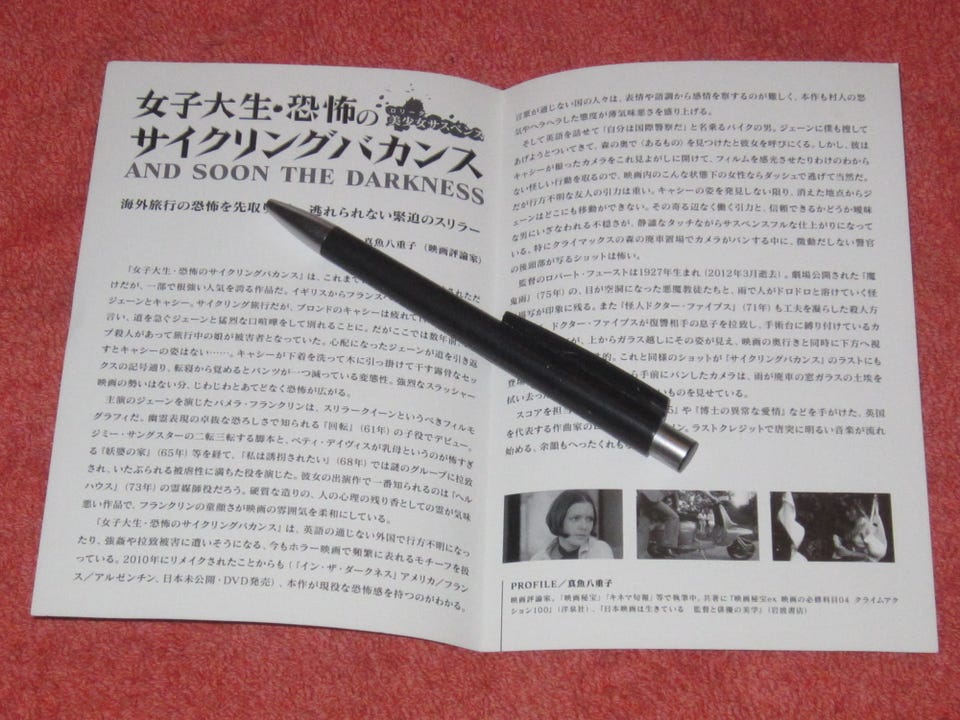 女子大生・恐怖の
ロリータ
美少女サスペンス
サイクリングバカンス
AND SOON THE DARKNESS
海外旅行の恐怖を先取り 逃れられない緊迫のスリラー
真魚八重子（映画評論家）
『女子大生・恐怖のサイクリングバカンス』は、これまで
けだが、一部で根強い人気を誇る作品だ。イギリスからフランスへ
ジェーンとキャシー。サイクリング旅行だが、ブロンドのキャシーは疲れて
言い、道を急ぐジェーンと猛烈な口喧嘩をして別れることに。だがここでは数年前、
プ殺人があって旅行中の娘が被害者となっていた。心配になったジェーンが道を引き返
すとキャシーの姿はない……。キャシーが下着を洗って木に引っ掛けて干す露骨なセッ
クスの記号通り、転寝から覚めるとパンツが一つ減っている変態性。強烈なスラッシャー
映画の勢いはない分、じわじわとあてどなく恐怖が広がる。
主演のジェーンを演じたパメラ・フランクリンは、スリラークイーンというべきフィルモ
グラフィだ。幽霊表現の卓抜な恐ろしさで知られる『回転』（61年）の子役でデビュー。
ジミー・サングスターの二転三転する脚本と、ベティ・デイヴィスが乳母というのが怖すぎ
る『妖婆の家』（65年）等を経て、『私は誘拐されたい』（68年）では謎のグループに拉致
され、いたぶられる被虐性に満ちた役を演じた。彼女の出演作で一番知られるのは『ヘル
ハウス』（73年）の霊媒師役だろう。硬質な造りの、人の心理の残り香としての霊が気味
悪い作品で、フランクリンの童顔さが映画の雰囲気を柔和にしている。
『女子大生・恐怖のサイクリングバカンス』は、英語の通じない外国で行方不明になっ
たり、強姦や拉致被害に遭いそうになる、今もホラー映画で頻繁に表れるモチーフを扱
っている。2010年にリメイクされたことからも（『イン・ザ・ダークネス』アメリカ／フラン
ス／アルゼンチン、日本未公開・DVD発売）、本作が現役な恐怖感を持つのがわかる。
言葉が通じない国の人々は、表情や語調から感情を察するのが難しく、本作も村人の怒
気やヘラヘラした態度が薄気味悪さを盛り上げる。
そして英語を話せて「自分は国際警察だ」と名乗るバイクの男。ジェーンに僕も捜して
あげようとついてきて、森の奥で〈あるもの〉を見つけたと彼女を呼びにくる。しかし、彼は
キャシーが撮ったカメラをこれ見よがしに開けて、フィルムを感光させたりわけのわから
ない怪しい行動を取るので、映画内のこんな状態下の女性ならダッシュで逃げて当然だ。
だが行方不明な友人の引力は重い。キャシーの姿を発見しない限り、消えた地点からジ
ェーンはどこにも移動ができない。その寄る辺なく働く引力と、信頼できるかどうか曖昧
な男にいざなわれる不穏さが、静謐なタッチながらサスペンスフルな仕上がりになって
いる。特にクライマックスの森の廃車置場でカメラがパンする中に、微動だしない警官
の後頭部が写るショットは怖い。
監督のロバート・フューストは1927年生まれ（2012年3月逝去）。劇場公開された『魔
鬼雨』（75年）の、目が空洞になった悪魔教徒たちと、雨で人がドロドロと溶けていく怪
写が印象に残る。また『怪人ドクター・ファイブス』（71年）も工夫を凝らした殺人方
ドクター・ファイブスが復讐相手の息子を拉致し、手術台に縛り付けているカ
が、上からガラス越しにその姿が見え、映画の奥行きと同時に下方へ視
的。これと同様のショットが『サイクリングバカンス』のラストにも
登場 ら手前にパンしたカメラは、雨が廃車の窓ガラスの土埃を
拭い去っ いものを見せている。
スコアを担 5』や『博士の異常な愛情』などを手がけた、英国
を代表する作曲家の ン。ラストクレジットで唐突に明るい音楽が流れ
始める、余韻もへったくれも
PROFILE／真魚八重子
映画評論家。『映画秘宝』『キネマ旬報』等で執筆中。共著に『映画秘宝ex 映画の必修科目04 クライムアク
ション100』（洋泉社）、『日本映画は生きている 監督と俳優の美学』（岩波書店）